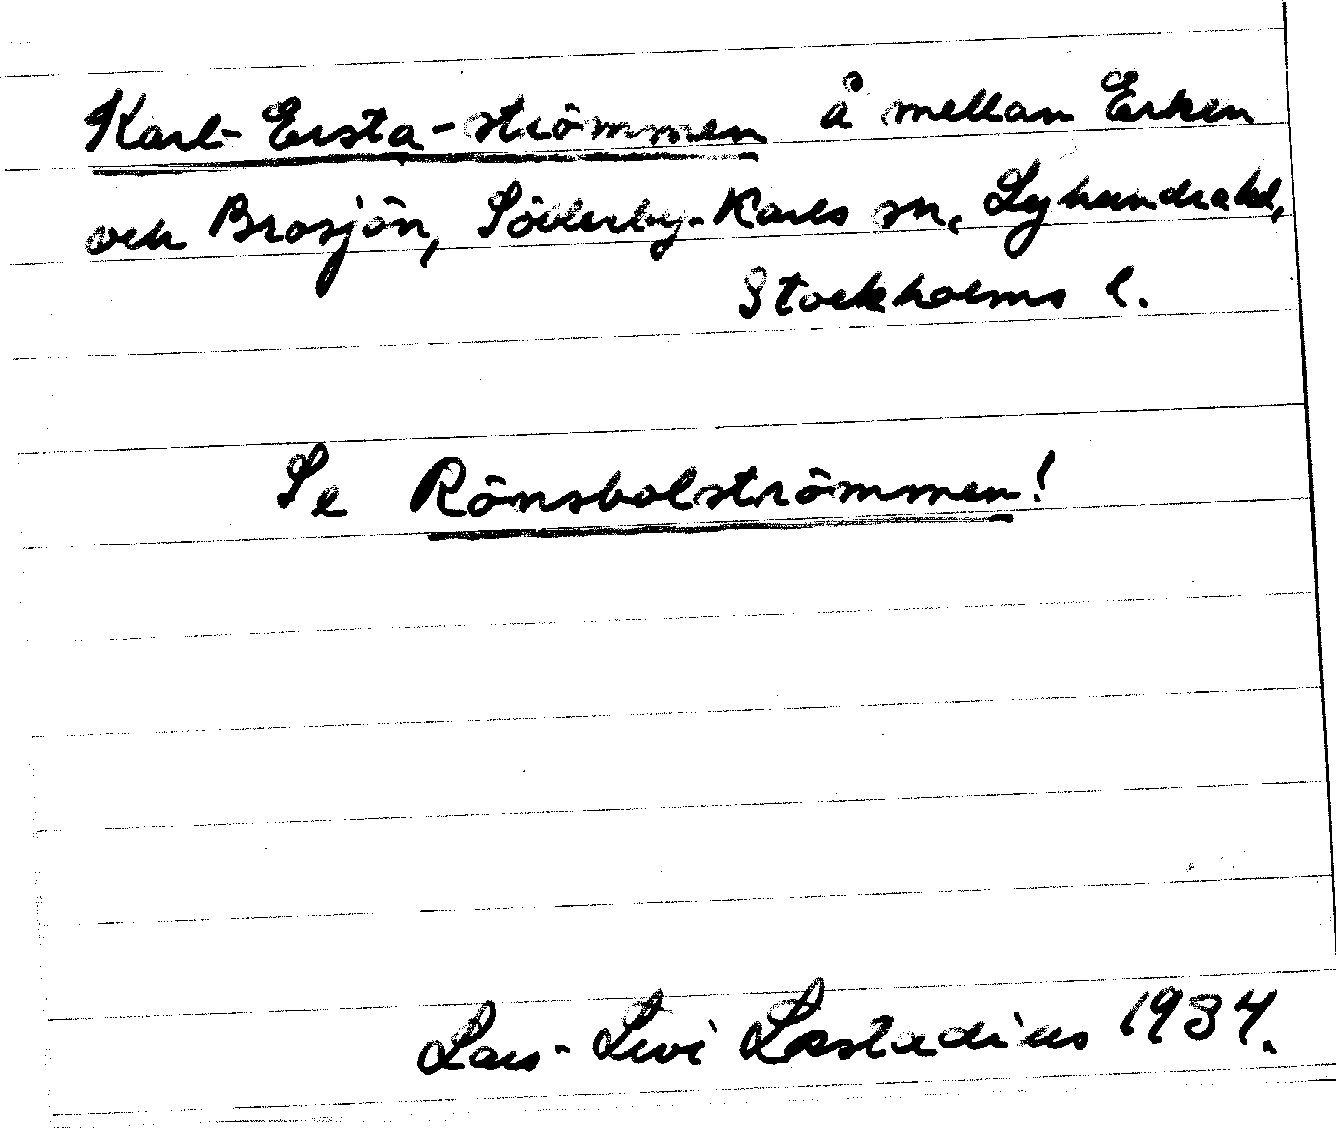 Karl-Ersta-strömmen å mellan Erken
och Brosjön, Söderby-Karls sn, Lyhundra hd,
Stockholms l.
Se Rönsbolströmmen!
Lars-Levi Læstadius 1934.